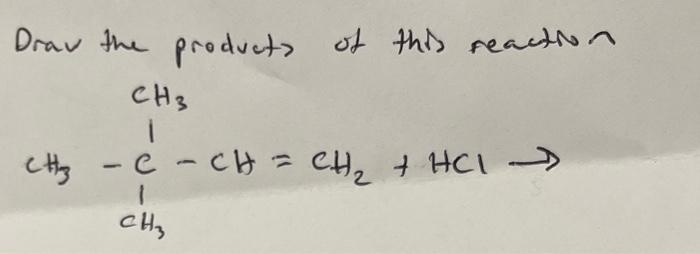 Draw the products of this reaction
CH3
|
CH3 - C - CH = CH2 + HCl →
|
CH3